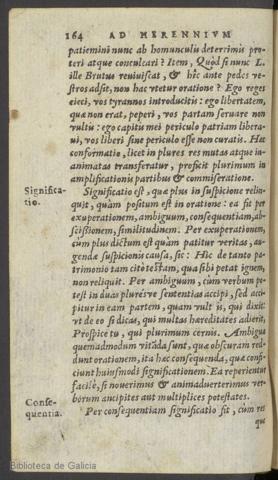 164 AD HERENNIVM
patiemini nunc ab homunculis deterrimis pro-
teri atque conculcari? Item, Quòd si nunc L.
ille Brutus reuiuiscat, & hîc ante pedes ve-
stros adsit, non hac vtetur oratione? Ego reges
eieci, vos tyrannos introducitis: ego libertatem,
quæ non erat, peperi, vos partam seruare non
vultis: ego capitis mei periculo patriam libera-
ui, vos liberi sine periculo esse non curatis. Hæc
conformatio, licet in plures res mutas atque in-
animatas transferatur, proficit plurimum in
amplificationis partibus & commiseratione.
Significa-
tio.
Significatio est, quæ plus in suspicione relin-
quit, quàm positum est in oratione: ea fit per
exuperationem, ambiguum, consequentiam, ab-
scissionem, similitudinem. Per exuperationem,
cùm plus dictum est quàm patitur veritas, au-
gendæ suspicionis causa, sic: Hic de tanto pa-
trimonio tam citò testam, qua sibi petat ignem,
non reliquit. Per ambiguum, cùm verbum po-
test in duas pluresve sententias accipi, sed acci-
pitur in eam partem, quam vult is, qui dixit:
vt de eo si dicas, qui multas hæreditates adierit,
Prospice tu, qui plurimum cernis. Ambigua
quemadmodum vitāda sunt, quæ obscuram red-
dunt orationem, ita hæc consequenda, quæ confi-
ciunt huiusmodi significationem. Ea reperientur
facilè, si nouerimus & animaduerterimus ver-
borum ancipites aut multiplices potestates.
Conse-
quentia.
Per consequentiam significatio fit, cùm res
quæ
Biblioteca de Galicia